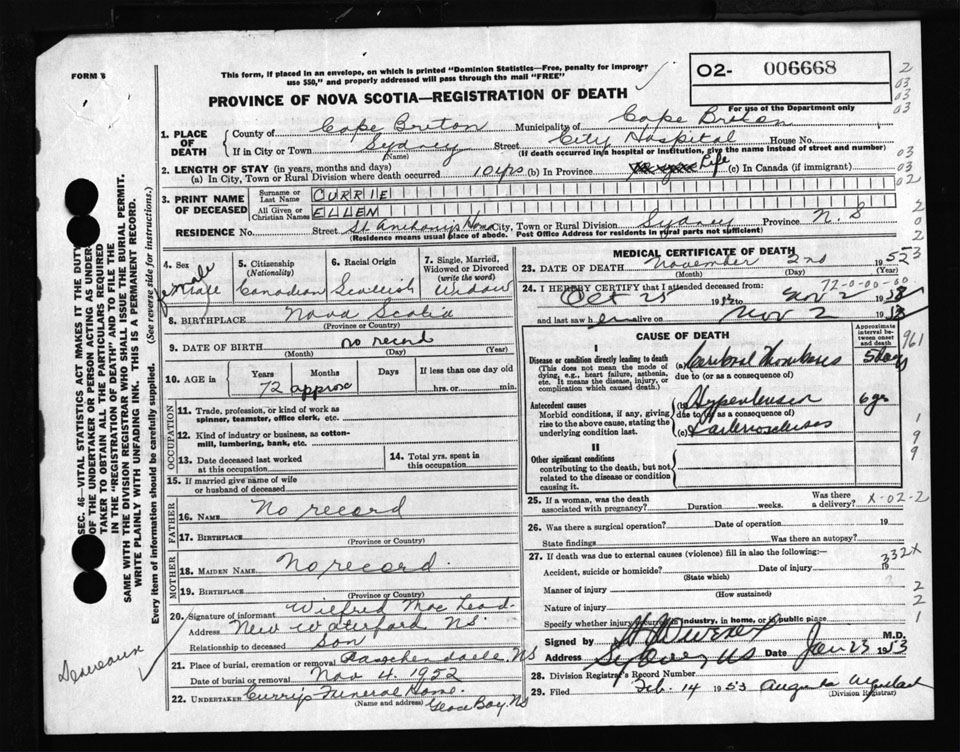 FORM 8
This form, if placed in an envelope, on which is printed "Dominion Statistics—Free, penalty for improper
use $50," and properly addressed will pass through the mail "FREE"
PROVINCE OF NOVA SCOTIA—REGISTRATION OF DEATH
02- 006668
For use of the Department only
2
03
03
03
1. PLACE OF DEATH
County of Cape Breton Municipality of Cape Breton
If in City or Town Sydney Street City Hospital House No.
(Name) (If death occurred in a hospital or institution, give the name instead of street and number)
2. LENGTH OF STAY (in years, months and days)
(a) In City, Town or Rural Division where death occurred 10 yrs (b) In Province Life (c) In Canada (if immigrant)
03
03
02
3. PRINT NAME OF DECEASED
Surname or Last Name CURRIE
All Given or Christian Names ELLEN
RESIDENCE No. Street St Anthony's Home City, Town or Rural Division Sydney Province N.S
(Residence means usual place of abode. Post Office Address for residents in rural parts not sufficient)
2
0
2
4. Sex female
5. Citizenship (Nationality) Canadian
6. Racial Origin Scottish
7. Single, Married, Widowed or Divorced (write the word) Widow
8. BIRTHPLACE Nova Scotia
(Province or Country)
9. DATE OF BIRTH no record
(Month) (Day) (Year)
10. AGE in Years Months Days If less than one day old
72 approx hrs. or min.
OCCUPATION
11. Trade, profession, or kind of work as spinner, teamster, office clerk, etc.
12. Kind of industry or business, as cotton-mill, lumbering, bank, etc.
13. Date deceased last worked at this occupation
14. Total yrs. spent in this occupation
15. If married give name of wife or husband of deceased
FATHER
16. NAME No record
17. BIRTHPLACE
(Province or Country)
MOTHER
18. MAIDEN NAME No record.
19. BIRTHPLACE
(Province or Country)
20. Signature of informant Wilfred Mac Lead
Address New Waterford NS
Relationship to deceased Son
21. Place of burial, cremation or removal Passchendaele, NS
Date of burial or removal Nov 4, 1952
22. UNDERTAKER Curry's Funeral Home.
(Name and address) Glace Bay, NS
MEDICAL CERTIFICATE OF DEATH
23. DATE OF DEATH November 2nd 1952
(Month) (Day) (Year)
3
72-0-00-00
24. I HEREBY CERTIFY that I attended deceased from:
Oct 25 1952 to Nov 2 1952
and last saw her alive on Nov 2 1952
CAUSE OF DEATH
Approximate interval between onset and death
I
Disease or condition directly leading to death
(This does not mean the mode of dying, e.g., heart failure, asthenia, etc. It means the disease, injury, or complication which caused death.)
(a) Cerebral Thrombosis 5 days
due to (or as a consequence of)
961
Antecedent causes
Morbid conditions, if any, giving rise to the above cause, stating the underlying condition last.
(b) Hypertension 6 yr
due to (or as a consequence of)
(c)
1
9
9
II
Other significant conditions
contributing to the death, but not related to the disease or condition causing it.
25. If a woman, was the death associated with pregnancy? Duration weeks. Was there a delivery? X-02-2
26. Was there a surgical operation? Date of operation 19
State findings Was there an autopsy?
27. If death was due to external causes (violence) fill in also the following:—
332X
Accident, suicide or homicide? Date of injury 19
(State which)
Manner of injury 2
(How sustained)
Nature of injury 2
Specify whether injury occurred in industry, in home, or in public place 1
Signed by M.D.
Address Sydney NS Date Jan 23 1953
28. Division Registrar's Record Number
29. Filed Feb. 14 1953
(Division Registrar)
SEC. 46—VITAL STATISTICS ACT MAKES IT THE DUTY
OF THE UNDERTAKER OR PERSON ACTING AS UNDER-
TAKER TO OBTAIN ALL THE PARTICULARS REQUIRED
IN THE "REGISTRATION OF DEATH" AND TO FILE THE
SAME WITH THE DIVISION REGISTRAR WHO SHALL ISSUE THE BURIAL PERMIT.
WRITE PLAINLY WITH UNFADING INK. THIS IS A PERMANENT RECORD.
Every item of information should be carefully supplied. (See reverse side for instructions.)